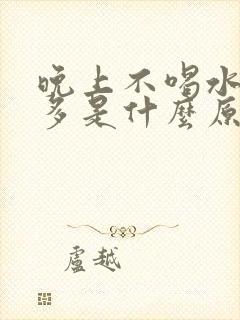 晚上不喝水
多是什麼原
盧越